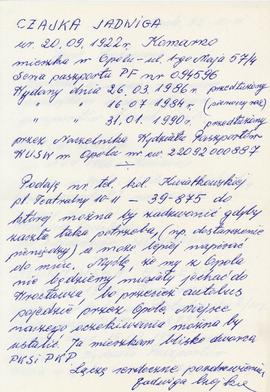 CZAJKA JADWIGA
ur. 20.09.1922r. Komarno
mieszka w Opolu - ul. 1go Maja 57/4
Seria paszportu PF nr 094596
Wydany dnia 26.03.1986r. przedłużony
" " 16.07 1984r. (pierwszy raz)
" " 31.01.1990r. przedłużony
przez Naczelnika Wydziału Paszportów
WUSW w Opolu nr ew 22092000887
Podaję nr tel. kol. Kwiatkowskiej
pl. Teatralny 10-11 - 39-875 do
której można by zadzwonić gdyby
zaszła taka potrzeba, (np. dostarczenie
pieniędzy) a może lepiej napisać
do mnie. Myślę, że my z Opola
nie będziemy musiały jechać do
Wrocławia, bo przecież autobus
pojedzie przez Opole. Miejsce
naszego oczekiwania można by
ustalić. Ja mieszkam blisko dworca
PKS i PKP
Łączę serdeczne pozdrowienia,
Jadwiga Czajka